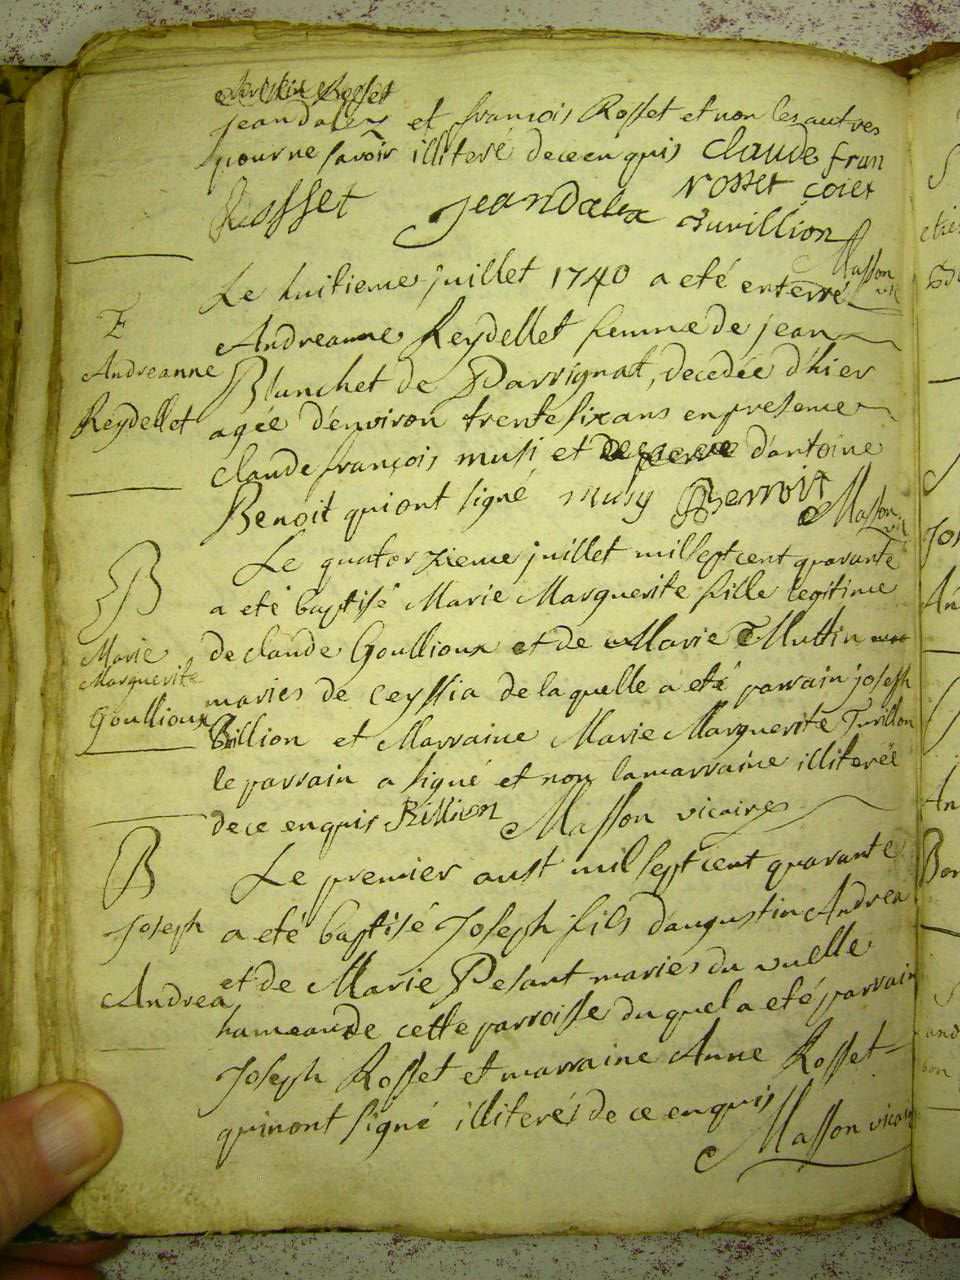 jeandalex et francois Rosset et non les autres
pour ne savoir illiteré de ce enquis Claude fran
Rosset jeandalex rosset coiex
turillion
Masson vic
Le huitieme juillet 1740 a eté enterré
E
Andreanne
Reydellet
Andreanne Reydellet femme de jean
Blanchet de Parrignat, decedée d'hier
agée d'environ trente six ans en presence
claude françois musi et d'antoine
Benoit qui ont signé musy Benoit
Masson vic
B
Marie
Marguerite
Goullioux
Le quatorzieme juillet mil sept cent quarante
a eté baptisé Marie Marguerite fille legitime
de claude Goullioux et de Marie Muttin
mariés de ceyssia de laquelle a eté parrain joseph
Billion et Marraine Marie Marguerite Turillon
le parrain a signé et non la marraine illiterée
de ce enquis Billion Masson vicaire
B
Joseph
Andrea
Le premier aust mil sept cent quarante
a eté baptisé Joseph fils d'augustin Andrea
et de Marie Pesant mariés du vuelle
hameau de cette parroisse duquel a eté parrain
Joseph Rosset et marraine Anne Rosset
qui nont signé illiterés de ce enquis
Masson vicaire